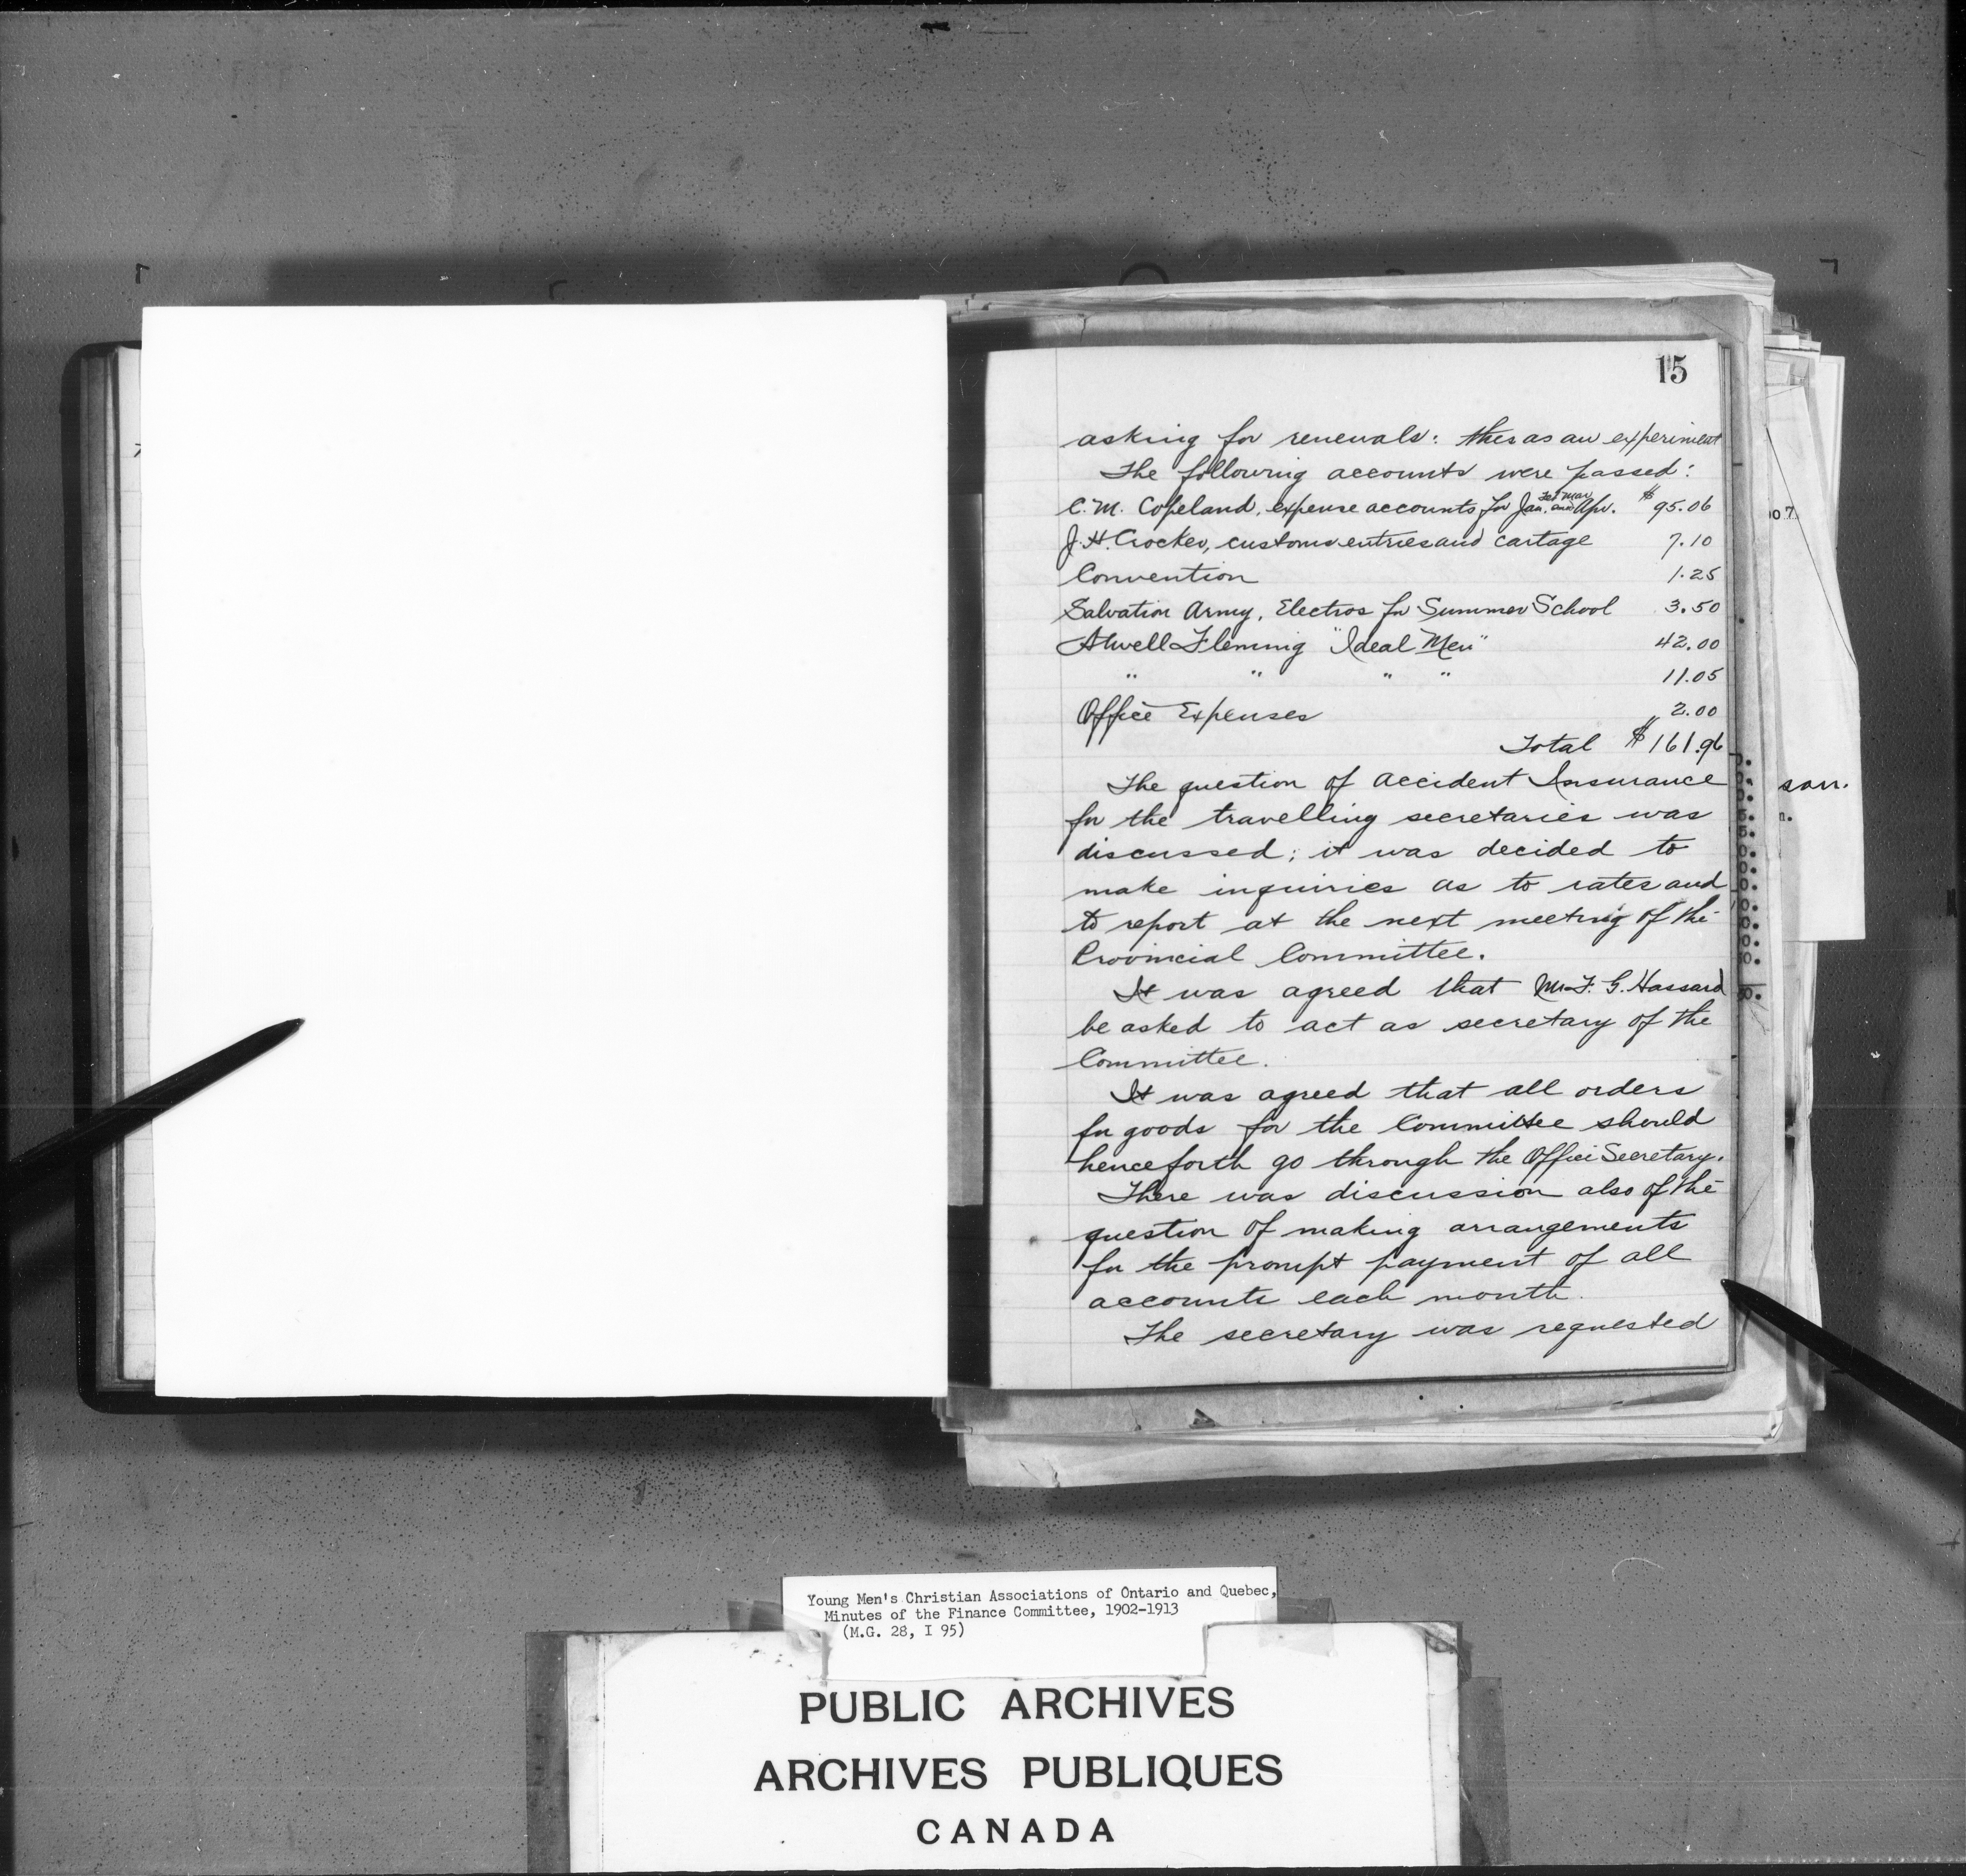 15
asking for renewals: this as an experiment
The following accounts were passed:
C. M. Copeland, expense accounts for Jan. Feb Mar and Apr. $95.06
J. H. Crocker, customs entries and cartage 7.10
Convention 1.25
Salvation Army, Electros for Summer School 3.50
Atwell Fleming "Ideal Men" 42.00
" " " " 11.05
Office Expenses 2.00
Total $161.96
The question of Accident Insurance
for the travelling secretaries was
discussed; it was decided to
make inquiries as to rates and
to report at the next meeting of the
Provincial Committee.
It was agreed that Mr F. G. Hassard
be asked to act as secretary of the
Committee.
It was agreed that all orders
for goods for the Committee should
henceforth go through the Office Secretary.
There was discussion also of the
question of making arrangements
for the prompt payment of all
accounts each month.
The secretary was requested
son.
Young Men's Christian Associations of Ontario and Quebec,
Minutes of the Finance Committee, 1902-1913
(M.G. 28, I 95)
PUBLIC ARCHIVES
ARCHIVES PUBLIQUES
CANADA